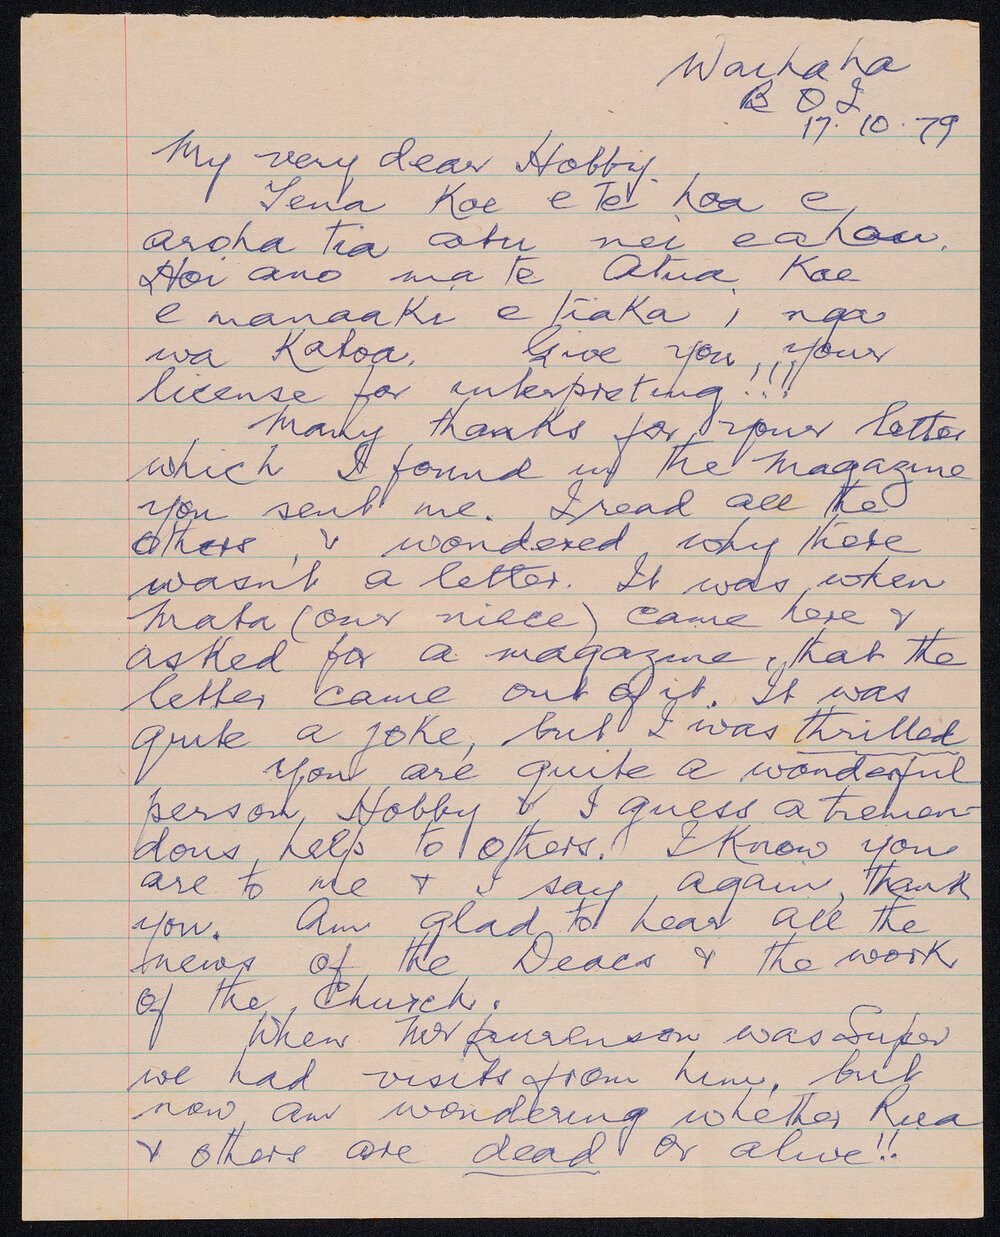 Waihaha
B O I
17.10.79
My very dear Hobby.
Tena Koe e te hoa e
aroha tia atu nei e ahau.
Hoi ano ma te Atua Koe
e manaaki e tiaka i nga
wa Katoa. Give you your
license for interpreting!!!!
Many thanks for your letter
which I found in the magazine
you sent me. I read all the
others, & wondered why there
wasn't a letter. It was when
Mata (our niece) came here &
asked for a magazine, that the
letter came out of it. It was
quite a joke, but I was thrilled
You are quite a wonderful
person Hobby & I guess a tremen
dous help to others. I know you
are to me & I say again, thank
you. Am glad to hear all the
news of the Deacs & the work
of the Church.
When Mr Laurenson was Super
we had visits from him, but
now am wondering whether Rua
& others are dead or alive!!